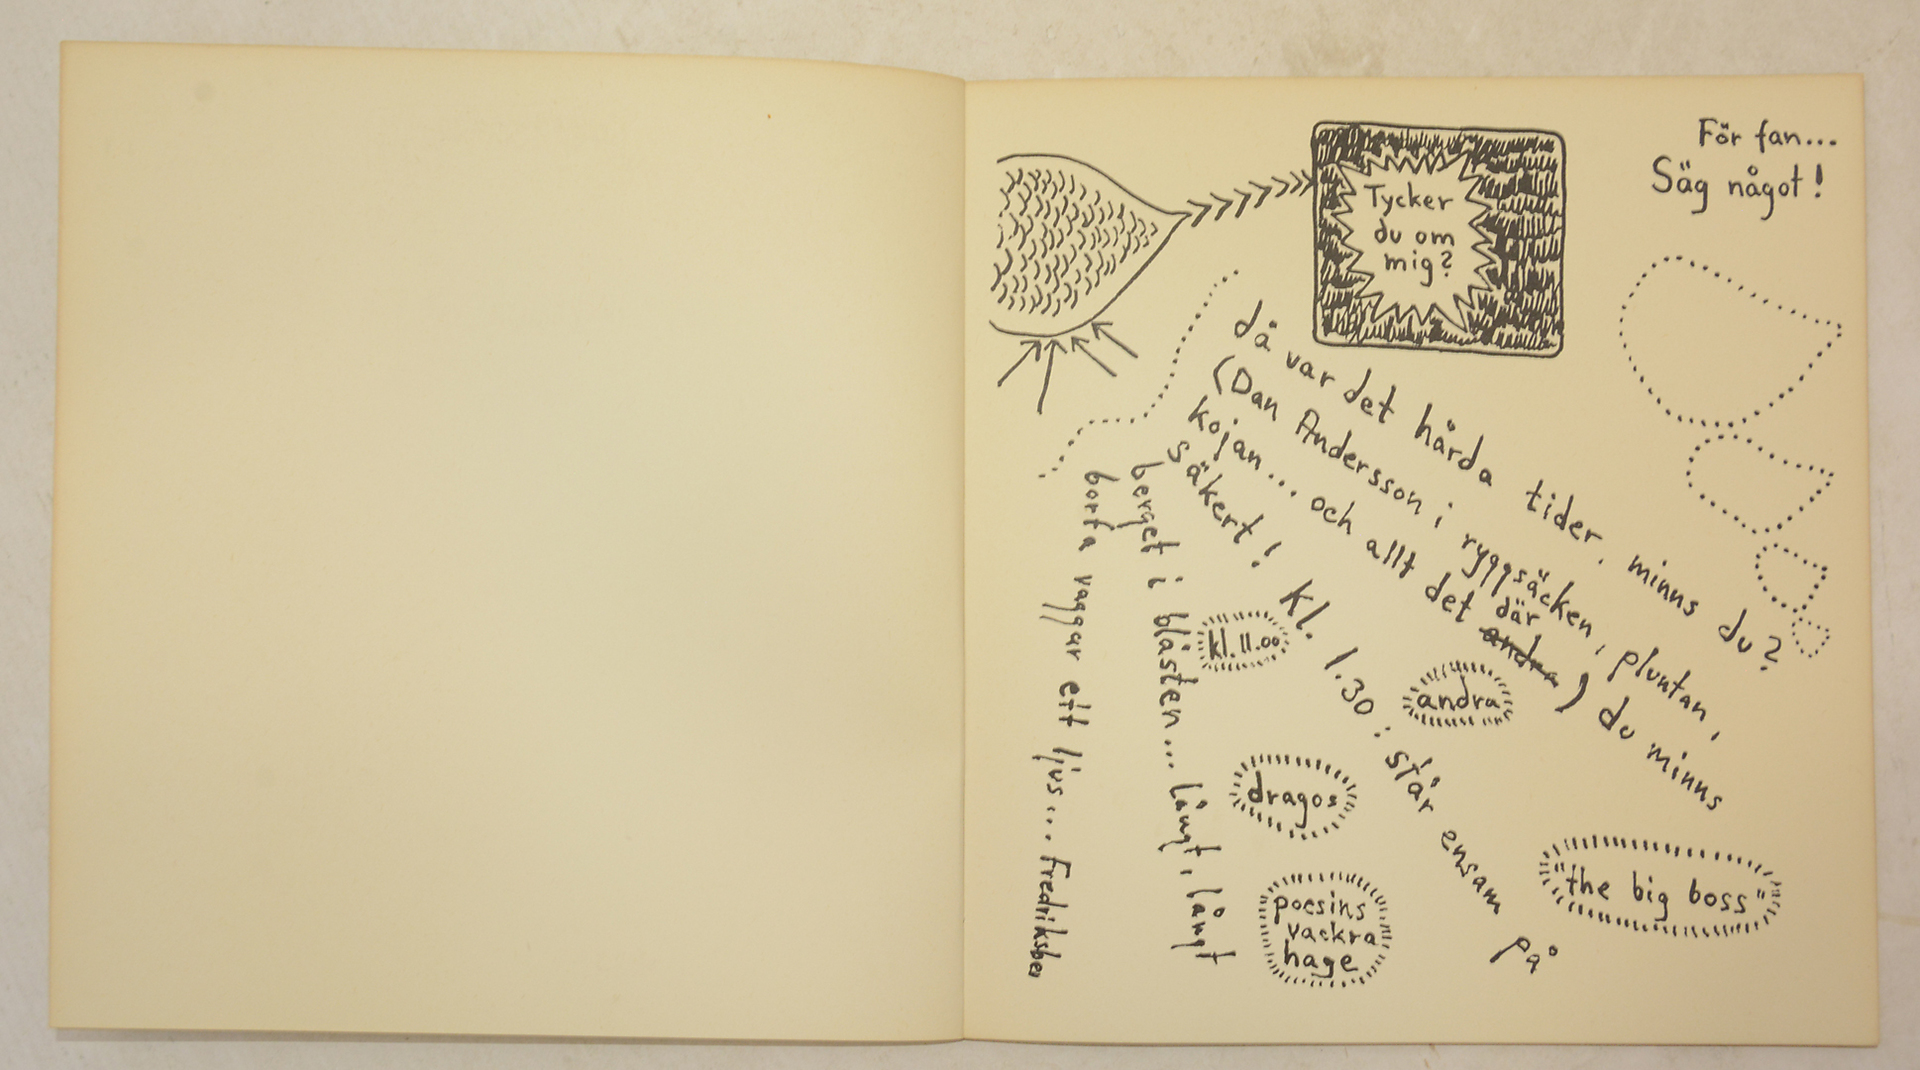 För fan...
Säg något!
Tycker
du om
mig?
då var det hårda tider, minns du?
(Dan Andersson i ryggsäcken, pluntan,
kojan... och allt det där andra) du minns
säkert! kl. 1.30: står ensam på
berget i blåsten... långt, långt
borta vaggar ett ljus.... Fredriksber
kl. 11.00
andra
dragos
"the big boss"
poesins
vackra
hage